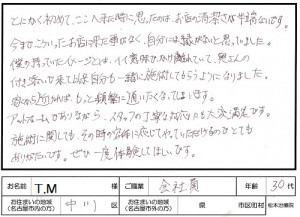 とにかく初めて、ここへ来た時に思ったのは、お店の清潔さが半端ないです。
今までこういったお店に来た事はなく、自分には縁がないと思っていました。
僕の持っていたイメージとは、イイ意味でかけ離れていて、奥さんの
付き添いで来て以来自分も一緒に施術してもらうようになりました。
家から近ければ、もっと頻繁に通いたくなってしまいます。
アットホームでありながら、スタッフの丁寧な対応にも大変満足です。
施術に関しても、その時の容体に応じてやっていただけるのでとても
ありがたいです。ぜひ一度体験してほしいです。
お名前 T.M 様 ご職業 会社員 年齢 30代
お住まいの地域(名古屋市内の方) 中川 区 お住まいの地域(名古屋市外の方) 県 市区町村